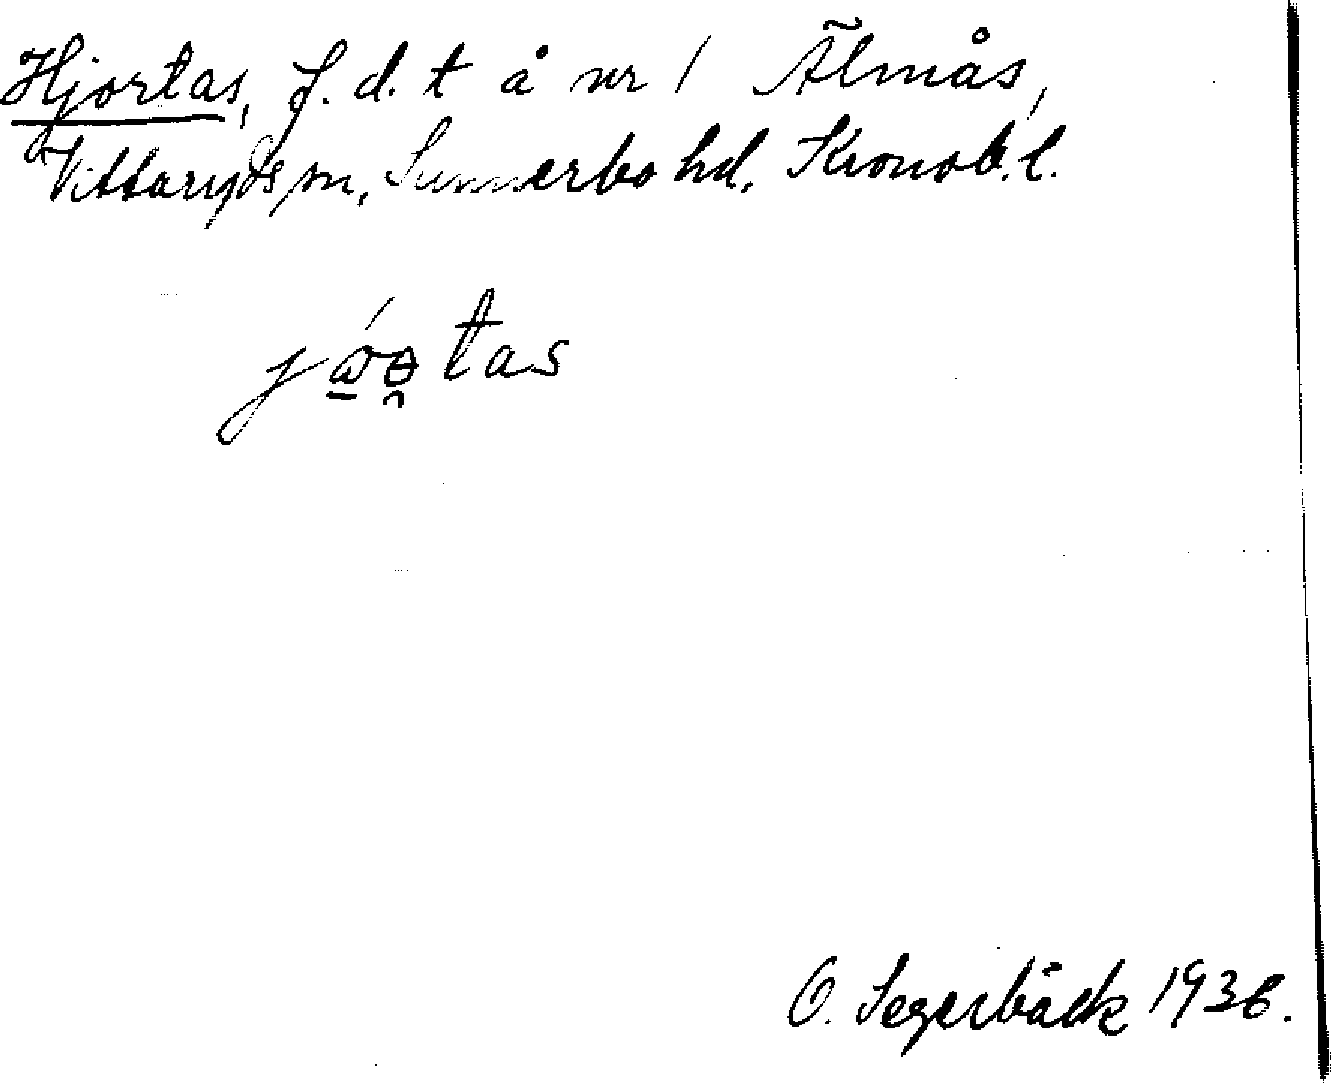 Hjortas, f.d. t å nr 1 Älmås,
Vittaryds sn, Sunnerbo hd. Kronob. l.
tas
O. Segerbäck 1936.